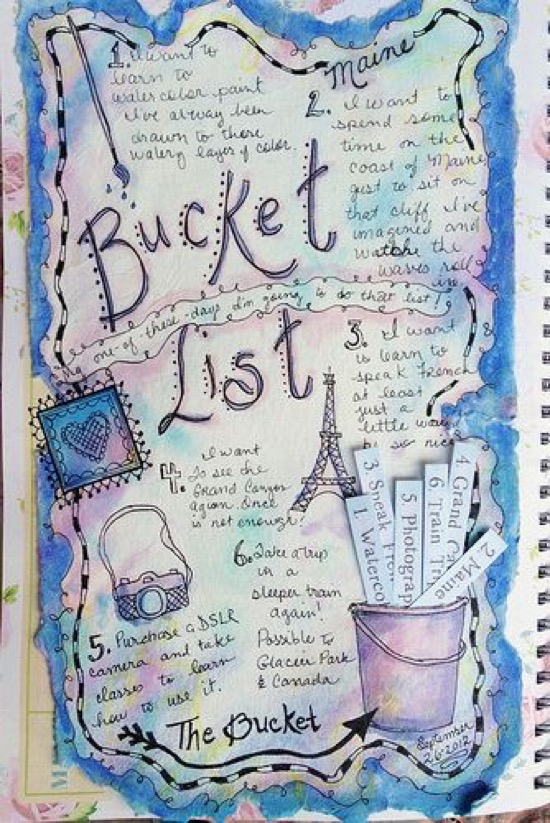 1. I want to
learn to
watercolor paint
I've always been
drawn to those
watery layers of color.
Maine
2. I want to
spend some
time on the
coast of Maine
just to sit on
that cliff I've
imagined and
watch the
waves roll
in
Bucket
one-of-these-days I'm going to do that list!
List
3. I want
to learn to
speak French
at least
just a
little would
be so nice
4. I want
to see the
Grand Canyon
again. Once
is not enough!
5. Purchase a DSLR
camera and take
classes to learn
how to use it.
6. Take a trip
in a
sleeper train
again!
Possible to
Glacier Park
& Canada
3 Speak Fren
1. Waterco
5 Photograp
6 Train Tr
4 Grand C
2 Maine
The Bucket
September
26-2012